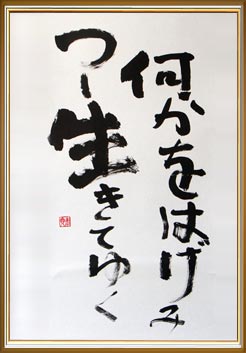 何かをはげみ
つゝ生きてゆく